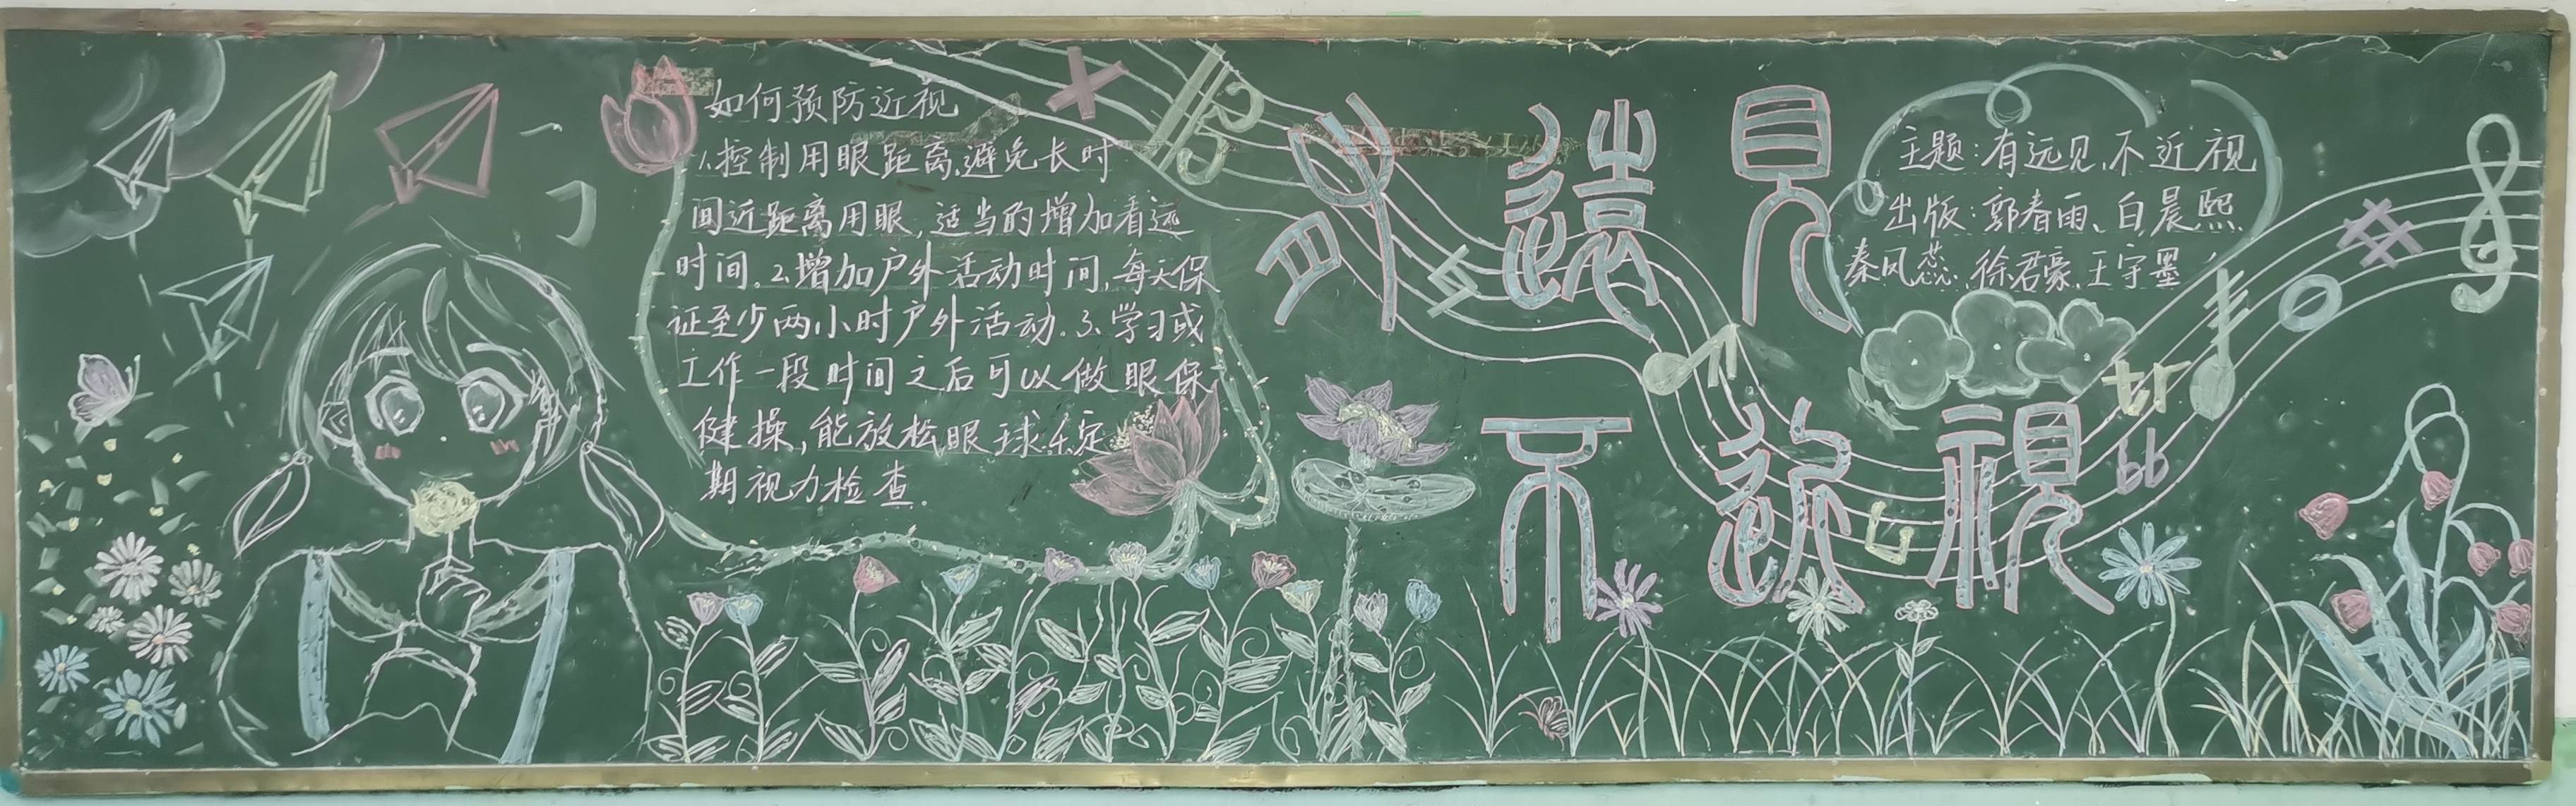 如何预防近视
1、控制用眼距离、避免长时
间近距离用眼，适当的增加看远
时间。2、增加户外活动时间，每天保
证至少两小时户外活动。3、学习或
工作一段时间之后可以做眼保
健操，能放松眼球4、定
期视力检查。
有遠見
不近視
主题：有远见、不近视
出版：郭春雨、白晨熙
秦风蕊、徐君豪、王宇墨
tr
bb